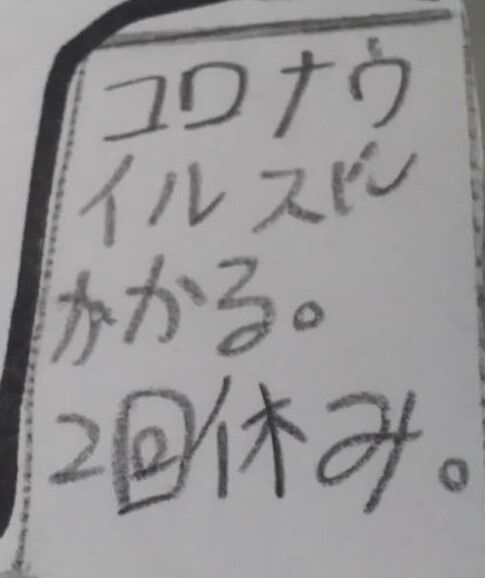 コロナウ
イルスに
かかる。
2回休み。